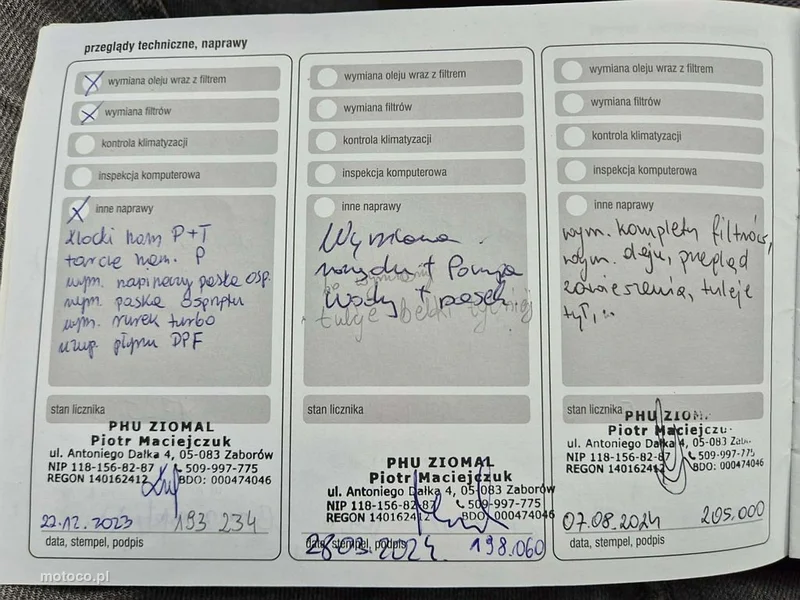 przeglądy techniczne, naprawy
wymiana oleju wraz z filtrem
wymiana filtrów
kontrola klimatyzacji
inspekcja komputerowa
inne naprawy
klocki ham P+T
tarcze ham. P
wym. napinaczy paska osp.
wym. paska osprzętu
wym. rurek turbo
uzup. płynu DPF
stan licznika
PHU ZIOMAL
Piotr Maciejczuk
ul. Antoniego Dałka 4, 05-083 Zaborów
NIP 118-156-82-87 509-997-775
REGON 140162412 BDO: 000474046
22.12.2023 193 234
data, stempel, podpis
wymiana oleju wraz z filtrem
wymiana filtrów
kontrola klimatyzacji
inspekcja komputerowa
inne naprawy
Wymiana
rozrządu + Pompa
wody + pasek
tuleje belki tylniej
stan licznika
PHU ZIOMAL
Piotr Maciejczuk
ul. Antoniego Dałka 4, 05-083 Zaborów
NIP 118-156-82-87 509-997-775
REGON 140162412 BDO: 000474046
data, stempel, podpis
28.03.2024. 198.060
wymiana oleju wraz z filtrem
wymiana filtrów
kontrola klimatyzacji
inspekcja komputerowa
inne naprawy
wym. komplety filtrów,
wym. oleju, przegląd
zawieszenia, tuleje
tył,
stan licznika
PHU ZIOM
Piotr Maciejczu
ul. Antoniego Dałka 4, 05-083 Zab
NIP 118-156-82-87 509-997-775
REGON 140162412 BDO: 000474046
07.08.2024 205.000
data, stempel, podpis
motoco.pl